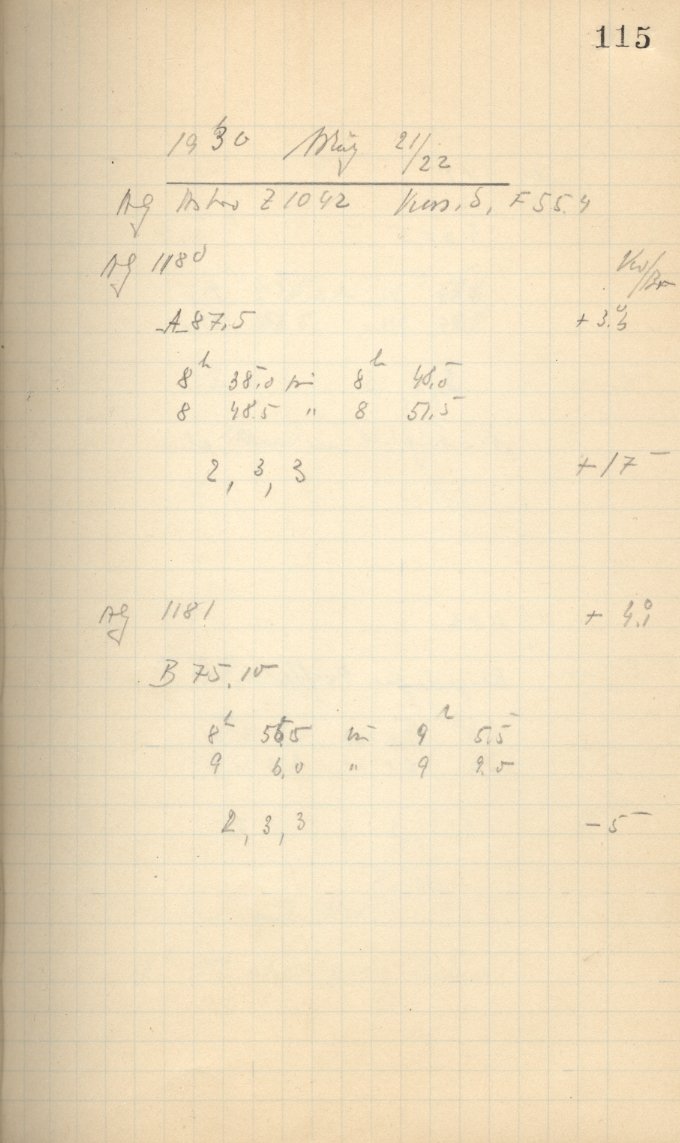 115
1930 März 21/22
AG Astro Z 1042 Kass. 5, F 55.4
AG 1180
A 87.5 +3.°3
8ʰ 38.0 bis 8ʰ 48.0
8 48.5 " 8 51.5
2, 3, 3 +17
AG 1181 + 4.°1
B 75.10
8ʰ 56.5 bis 9ʰ 5.5
9 6.0 " 9 9.0
2, 3, 3 -5